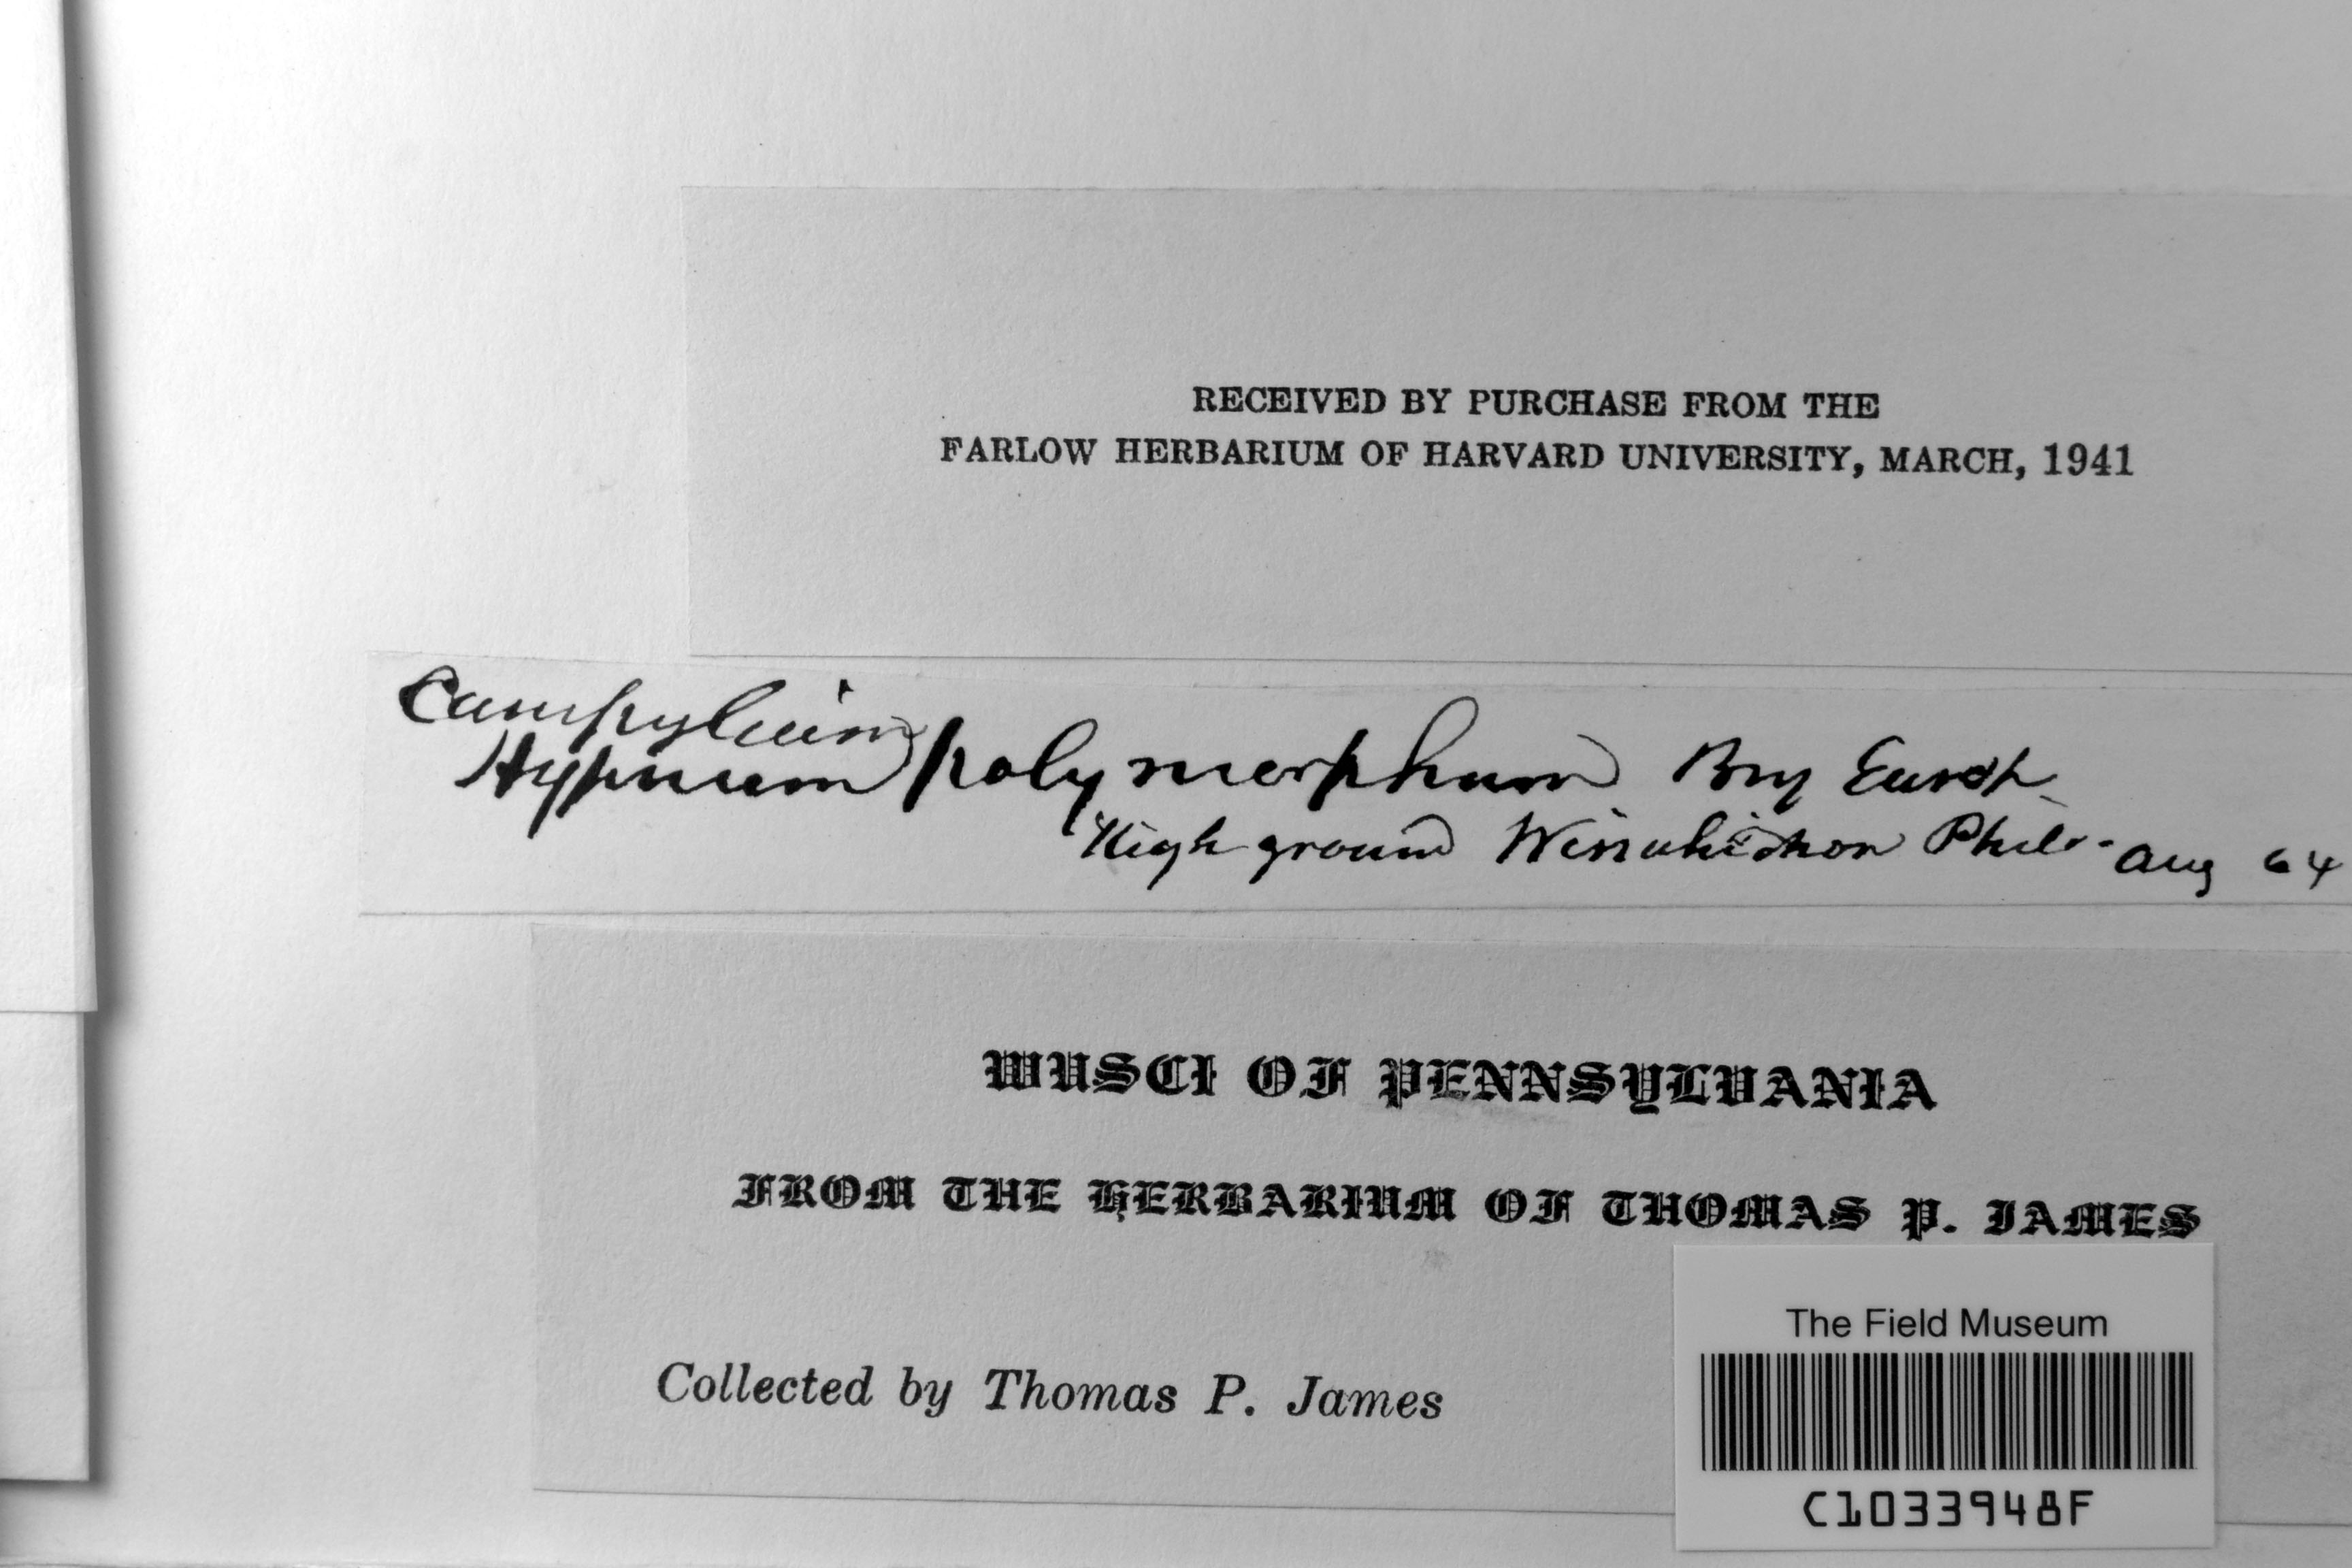 RECEIVED BY PURCHASE FROM THE
FARLOW HERBARIUM OF HARVARD UNIVERSITY, MARCH, 1941
Campylium
Hypnum polymorphum Bry Europ
High ground Wissahickon Phila. Aug 64
MUSCI OF PENNSYLVANIA
FROM THE HERBARIUM OF THOMAS P. JAMES
Collected by Thomas P. James
The Field Museum
C1033948F